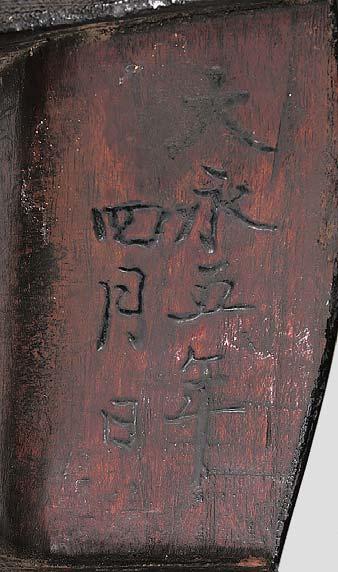 大永五年
四月 日